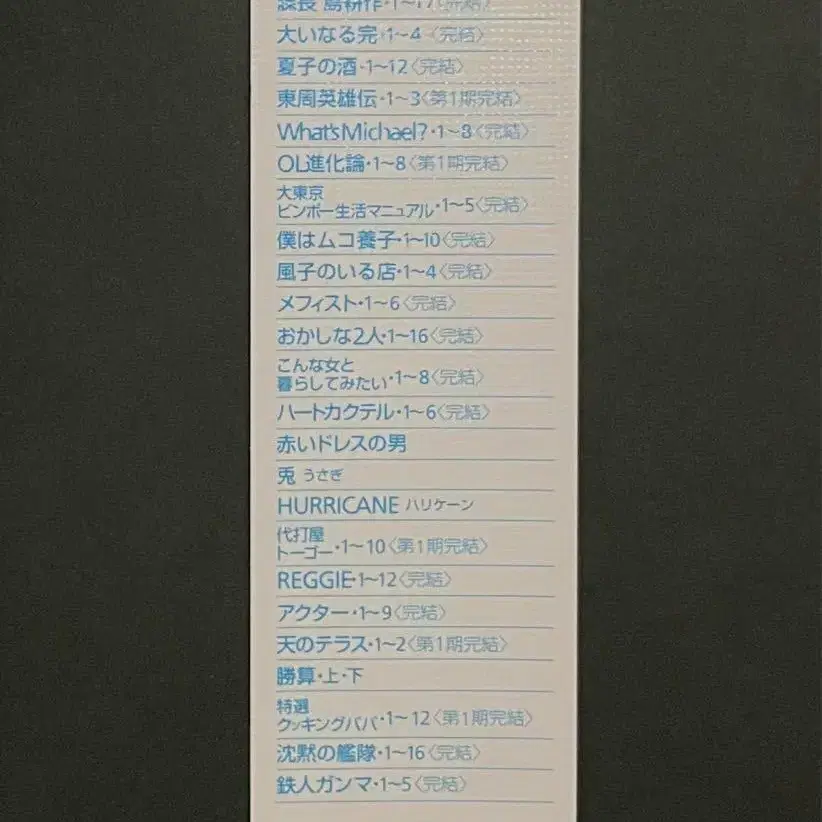 課長 島耕作・1〜17〈完結〉
大いなる完・1〜4〈完結〉
夏子の酒・1〜12〈完結〉
東周英雄伝・1〜3〈第1期完結〉
What's Michael?・1〜8〈完結〉
OL進化論・1〜8〈第1期完結〉
大東京
ビンボー生活マニュアル・1〜5〈完結〉
僕はムコ養子・1〜10〈完結〉
風子のいる店・1〜4〈完結〉
メフィスト・1〜6〈完結〉
おかしな2人・1〜16〈完結〉
こんな女と
暮らしてみたい・1〜8〈完結〉
ハートカクテル・1〜6〈完結〉
赤いドレスの男
兎 うさぎ
HURRICANE ハリケーン
代打屋
トーゴー・1〜10〈第1期完結〉
REGGIE・1〜12〈完結〉
アクター・1〜9〈完結〉
天のテラス・1〜2〈第1期完結〉
勝算・上・下
特選
クッキングパパ・1〜12〈第1期完結〉
沈黙の艦隊・1〜16〈完結〉
鉄人ガンマ・1〜5〈完結〉